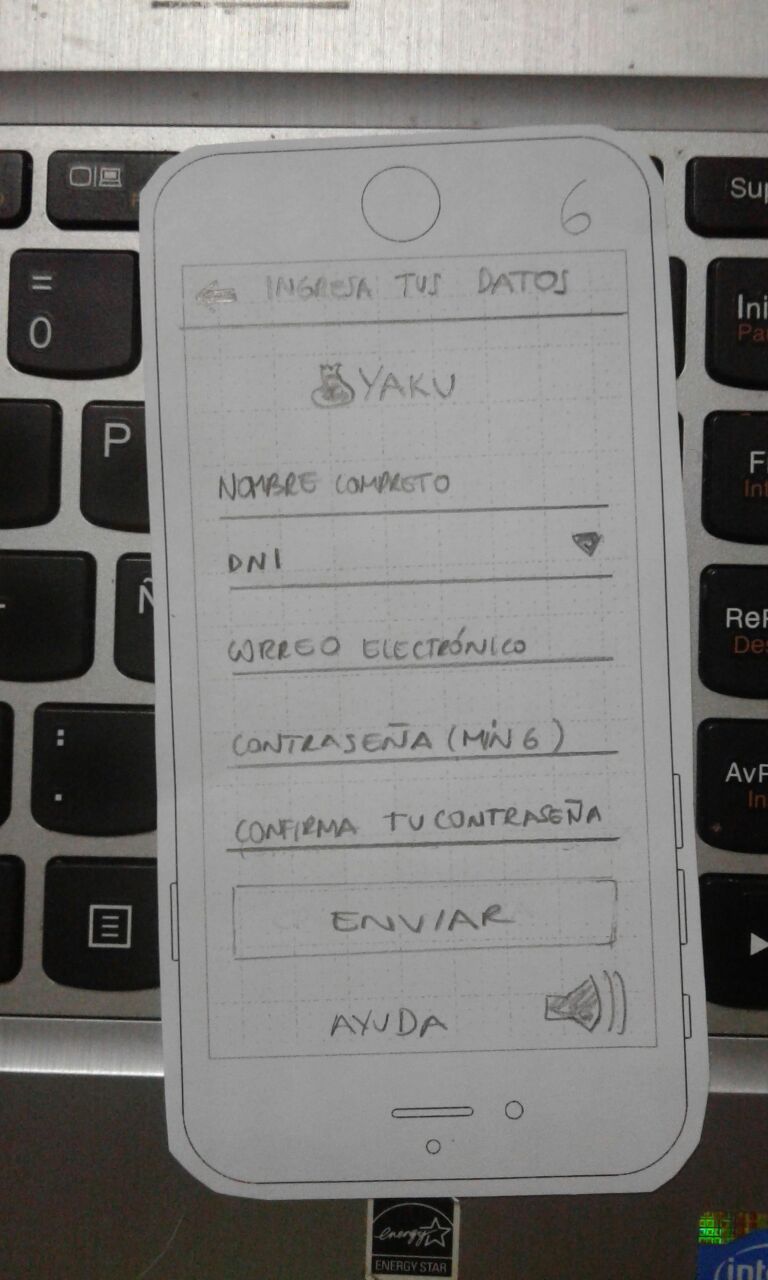 6
INGRESA TUS DATOS
YAKU
NOMBRE COMPLETO
DNI
CORREO ELECTRÓNICO
CONTRASEÑA (MÍN 6)
CONFIRMA TU CONTRASEÑA
ENVIAR
AYUDA
=
0
P
Ñ
:
.
Sup
Ini
Pa
F
Int
ReP
Des
AvP
In
energy
ENERGY STAR
int